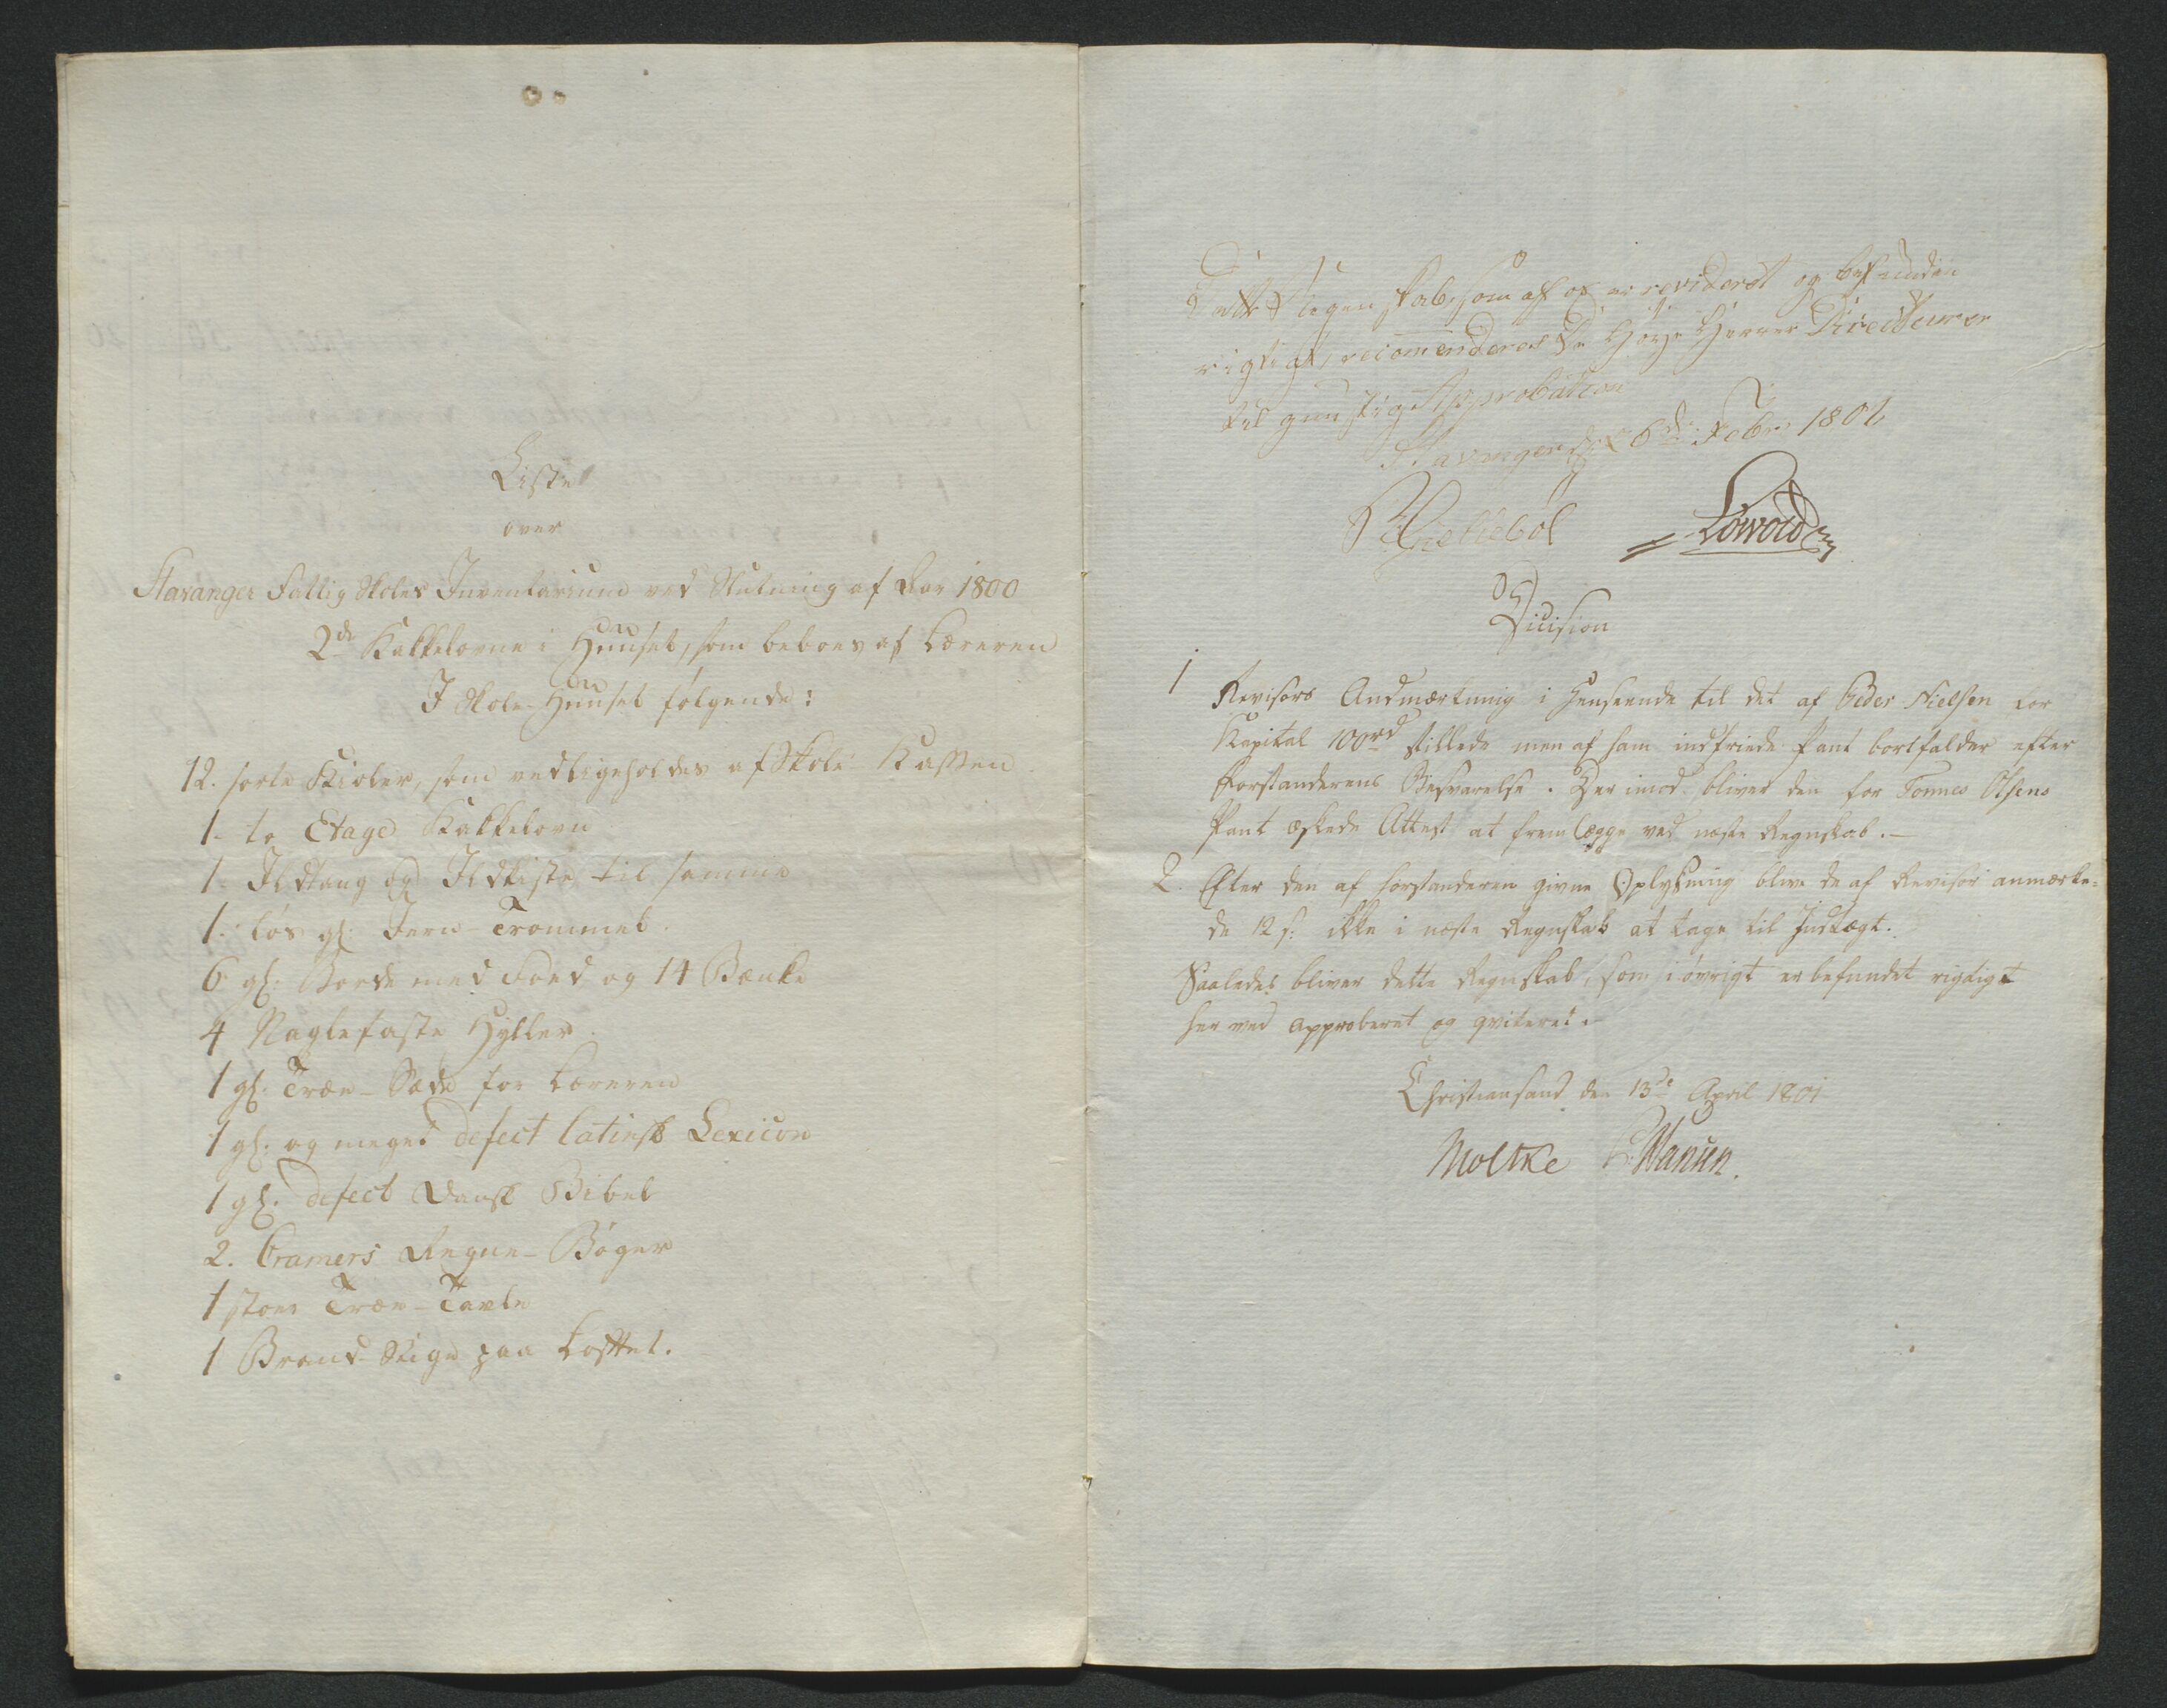 Liste
over
Stavanger Fattig Skoles Inventarium ved Slutning af Aar 1800
2de Kakkelovne i Huuset, som beboes af Læreren
I Skole-Huuset følgende:
12. sorte Kioler, som vedligeholdes af Skole Kassen
1. to Etage Kakkelovn
1. Ildtang og Ildkiste til samme
1. løs gl: Jern-Trommel.
6 gl: Borde med Foed og 14 Bænke
4 Naglefaste Hylder.
1 gl: Træe-Sæde for Læreren
1 gl: og meget defect latinsk Lexicon
1 gl: defect Dansk Bibel
2. Cramers Regne-Bøger
1 stoer Træe-Tavle
1 Brand-Stige paa Loftet.
Dette Regenskab, som af os er revideret og befunden
rigtigt, recomenderes De Høye Herrer Directeurer
til gunstig Approbation
Stavanger d: 6de Febr: 1801
Gjetiebol Løwold
Dicision
1 Revisors Andmærkning i Henseende til det af Peder Nielsen for
Kapital 100rd stillede men af ham indfriede Pant bortfalder efter
Forstanderens Besvarelse. Der imod bliver den for Tønnes Olsens
Pant æskede Attest at fremlægge ved næste Regnskab.-
2. Efter den af Forstanderen givne Oplysning blive de af Revisor anmærke-
de 12 s: ikke i næste Regnskab at tage til Indtægt.
Saaledes bliver dette Regnskab, som i øvrigt er befundet rigtigt
her ved approberet og qviteret.
Christiansand den 13de April 1801
Moltke P. Hansen.